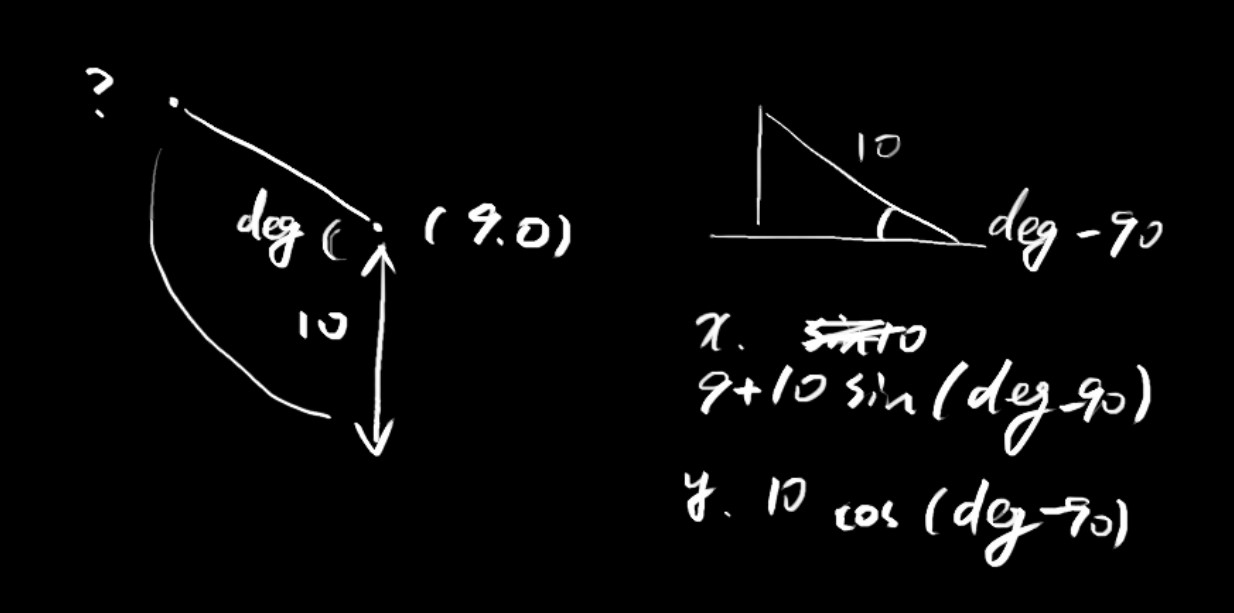 ?
deg
(9.0)
10
10
deg-90
x.
9+10 sin(deg-90)
y. 10 cos (deg-90)